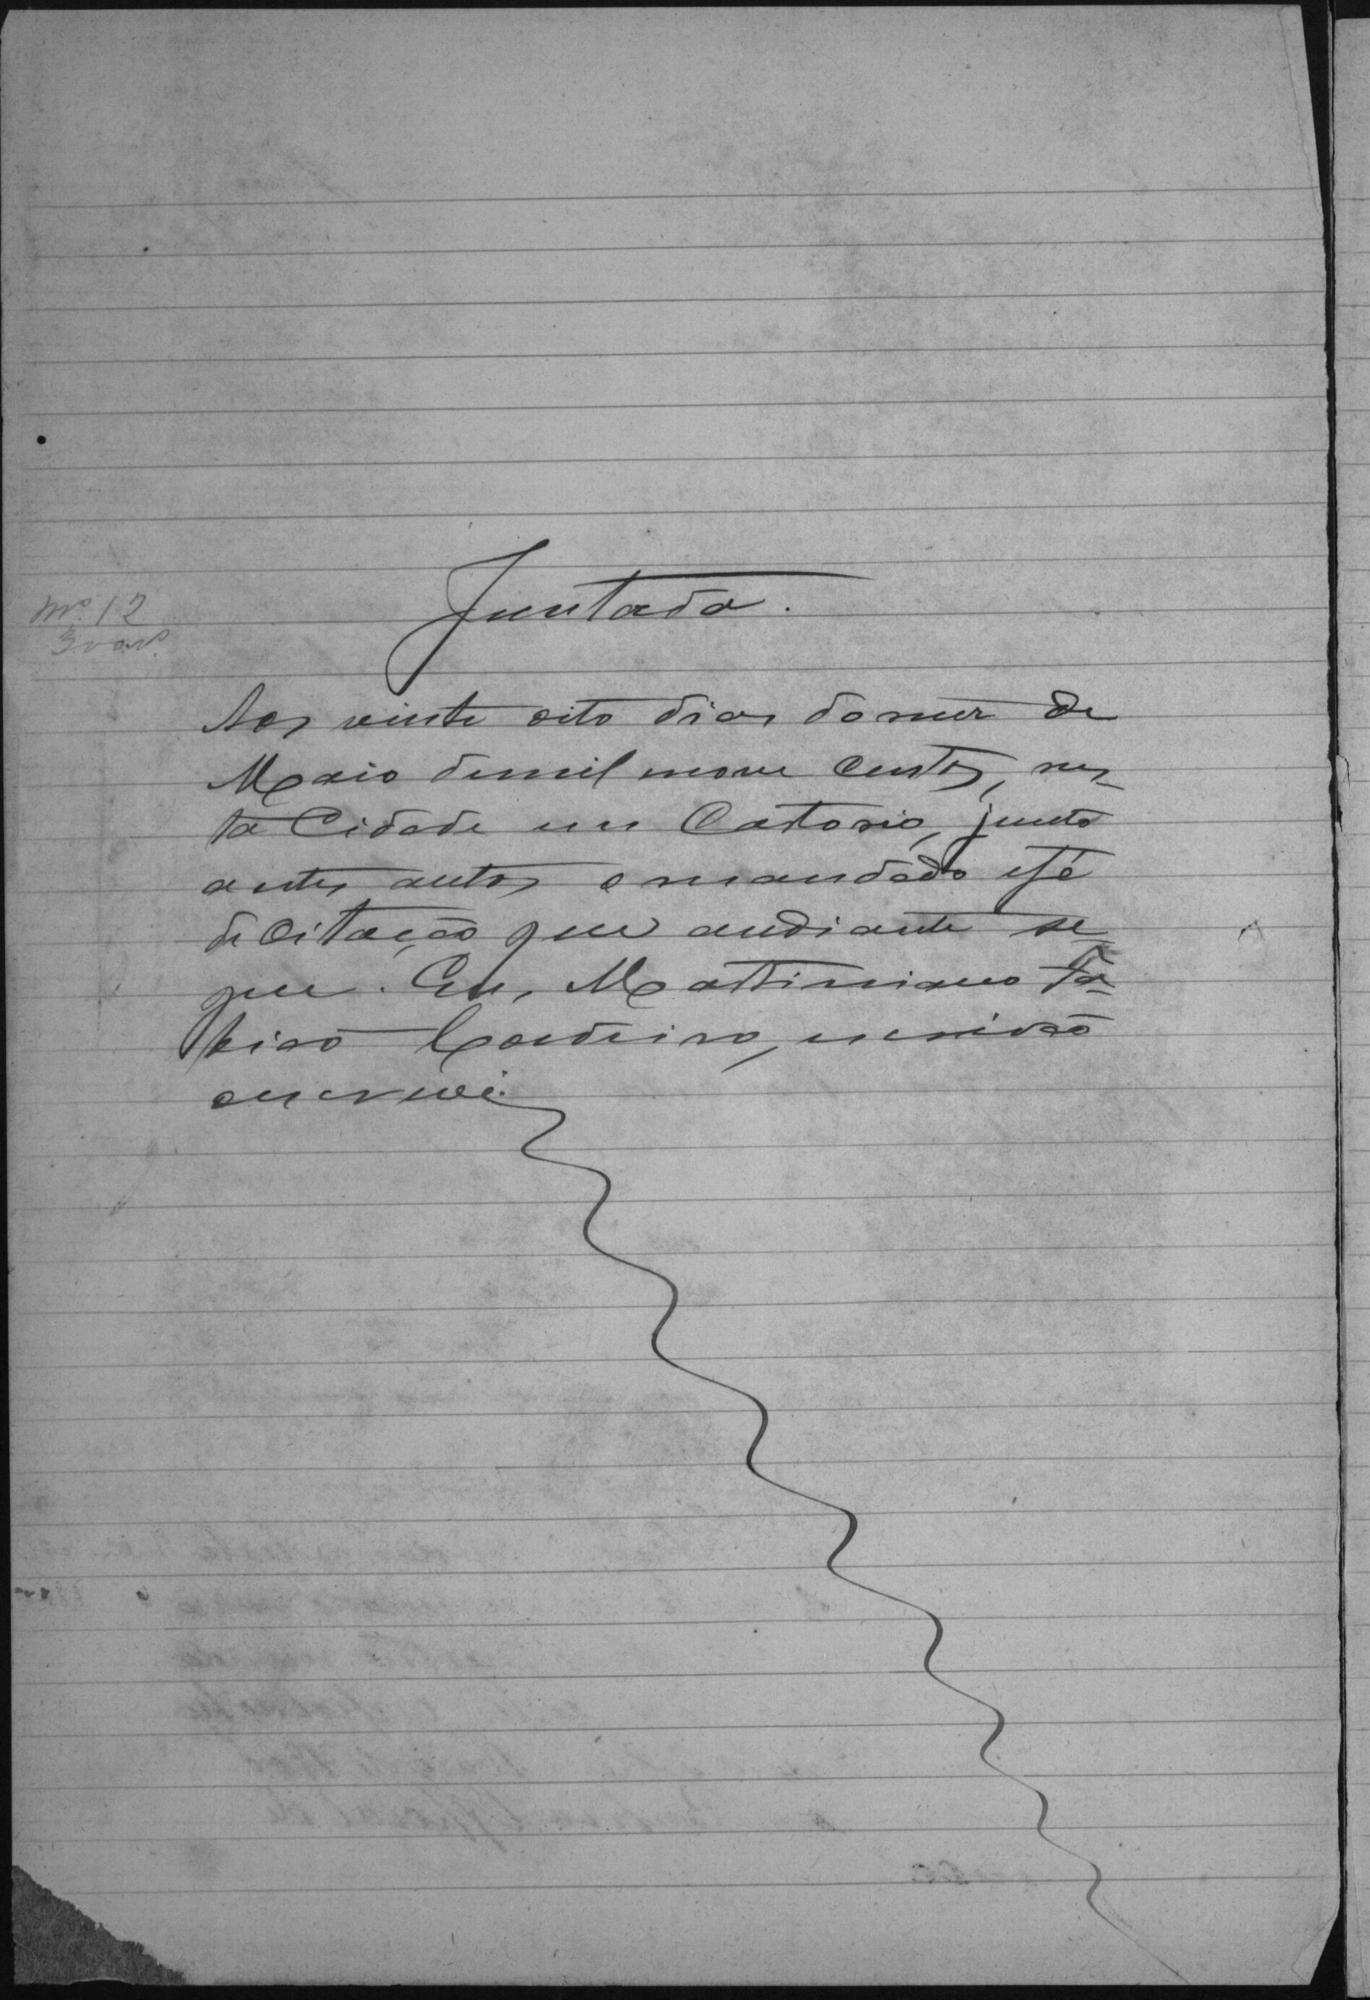 Juntada.
Nº 12
Aos vinte oito dias do mez de
Maio de mil nove centos, nes-
ta Cidade em Catorio, junto
a estes autos o mandado e fé
de Citação que andiante se-
gue. Eu, Martiniano Fa-
biao Cordeiro, escrivão
escrevi.